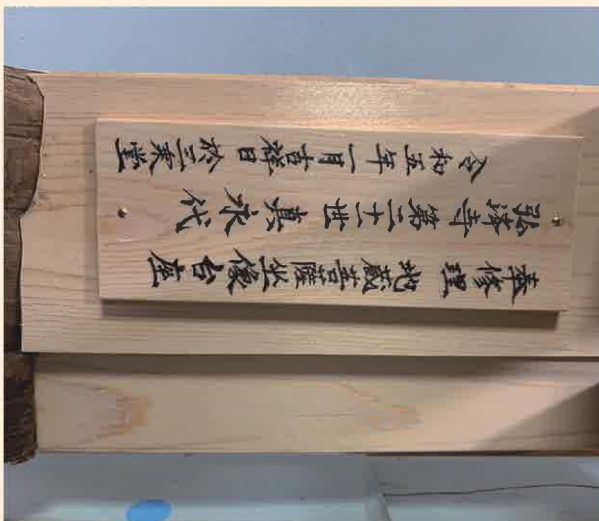 奉修理 地蔵菩薩坐像台座
弘済寺第二十一世 真永代
令和五年一月吉祥日於三乗堂